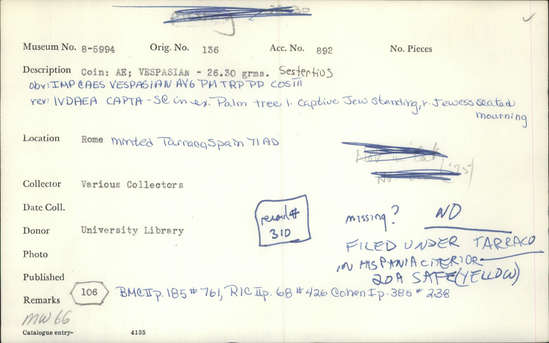 Museum No. 8-5994 Orig. No. 136 Acc. No. 892 No. Pieces
Description Coin: AE; VESPASIAN - 26.30 grms. Sestertius
obv: IMP CAES VESPASIAN AVG PM TRP PD COSIII
rev: IVDAEA CAPTA - SC in ex. Palm tree l. Captive Jew standing, r. Jewess seated
mourning
Location Rome minted Tarraco, Spain 71 AD
Collector Various Collectors
Date Coll.
Donor University Library
record #
310
missing? NO
FILED UNDER TARRACO
IN HISPANIA CITERIOR
20A SAFE (YELLOW)
Photo
Published
Remarks 106 BMC II p. 185 # 761, RIC II p. 68 # 426 Cohen I p. 385 # 238
MW 66
Catalogue entry- 4135